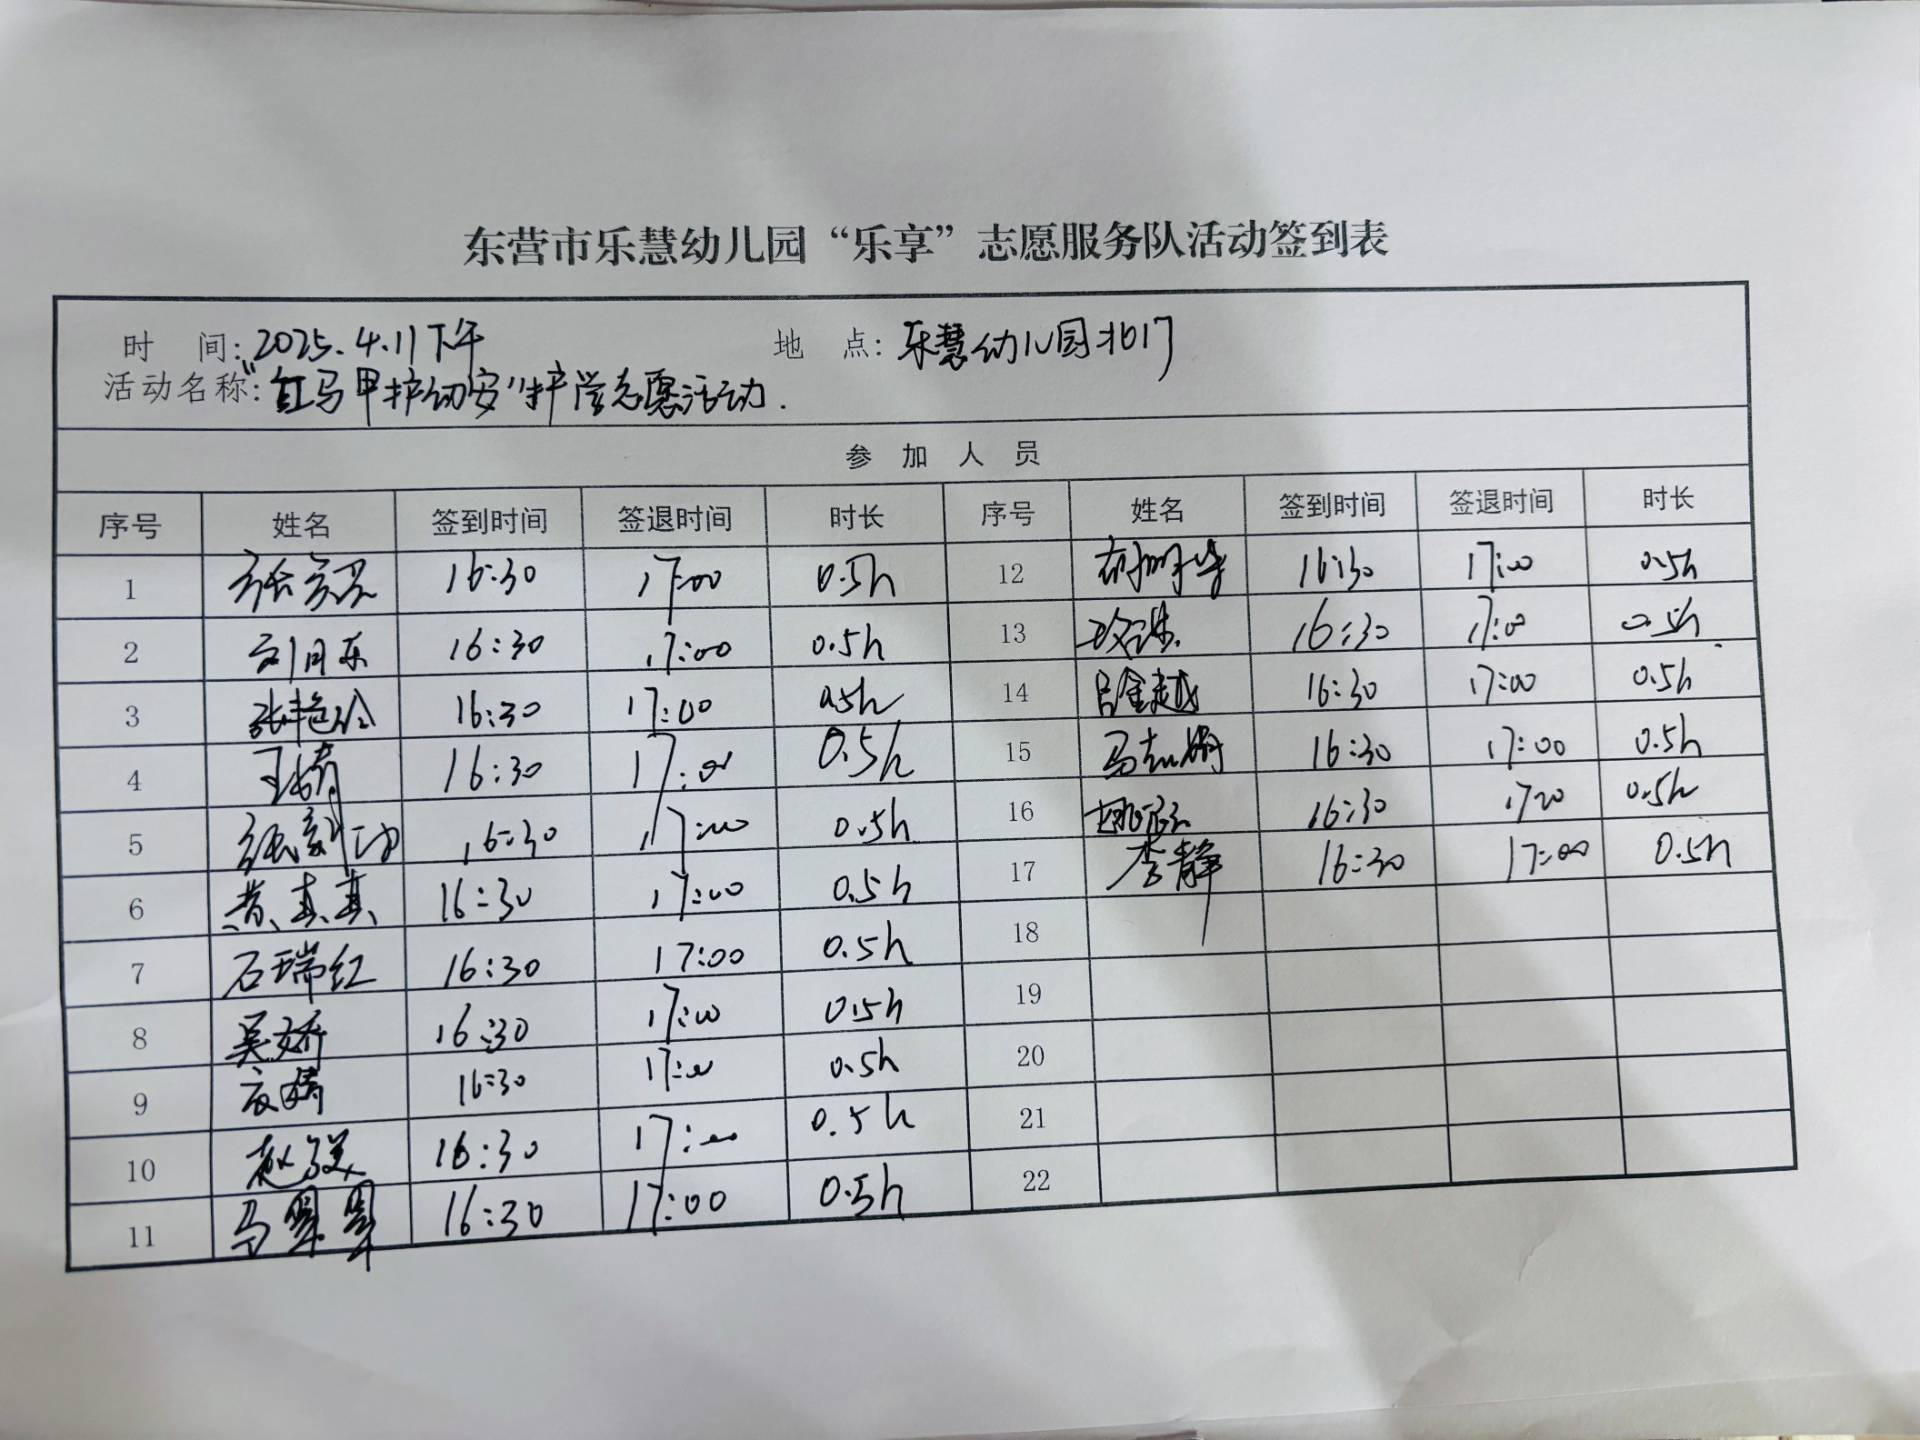 东营市乐慧幼儿园“乐享”志愿服务队活动签到表
时 间:2025.4.11下午 地 点:乐慧幼儿园北门
活动名称:"红马甲护幼安"护学志愿活动.
参 加 人 员
序号 姓名 签到时间 签退时间 时长 序号 姓名 签到时间 签退时间 时长
1 16:30 17:00 0.5h 12 16:30 17:00 0.5h
2 刘月东 16:30 17:00 0.5h 13 16:30 17:00 0.5h
3 张艳玲 16:30 17:00 0.5h 14 吕金越 16:30 17:00 0.5h
4 王倩 16:30 17:00 0.5h 15 16:30 17:00 0.5h
5 16:30 17:00 0.5h 16 16:30 17:00 0.5h
6 黄真真 16:30 17:00 0.5h 17 李静 16:30 17:00 0.5h
7 石瑞红 16:30 17:00 0.5h 18
8 吴娇 16:30 17:00 0.5h 19
9 16:30 17:00 0.5h 20
10 16:30 17:00 0.5h 21
11 马翠翠 16:30 17:00 0.5h 22